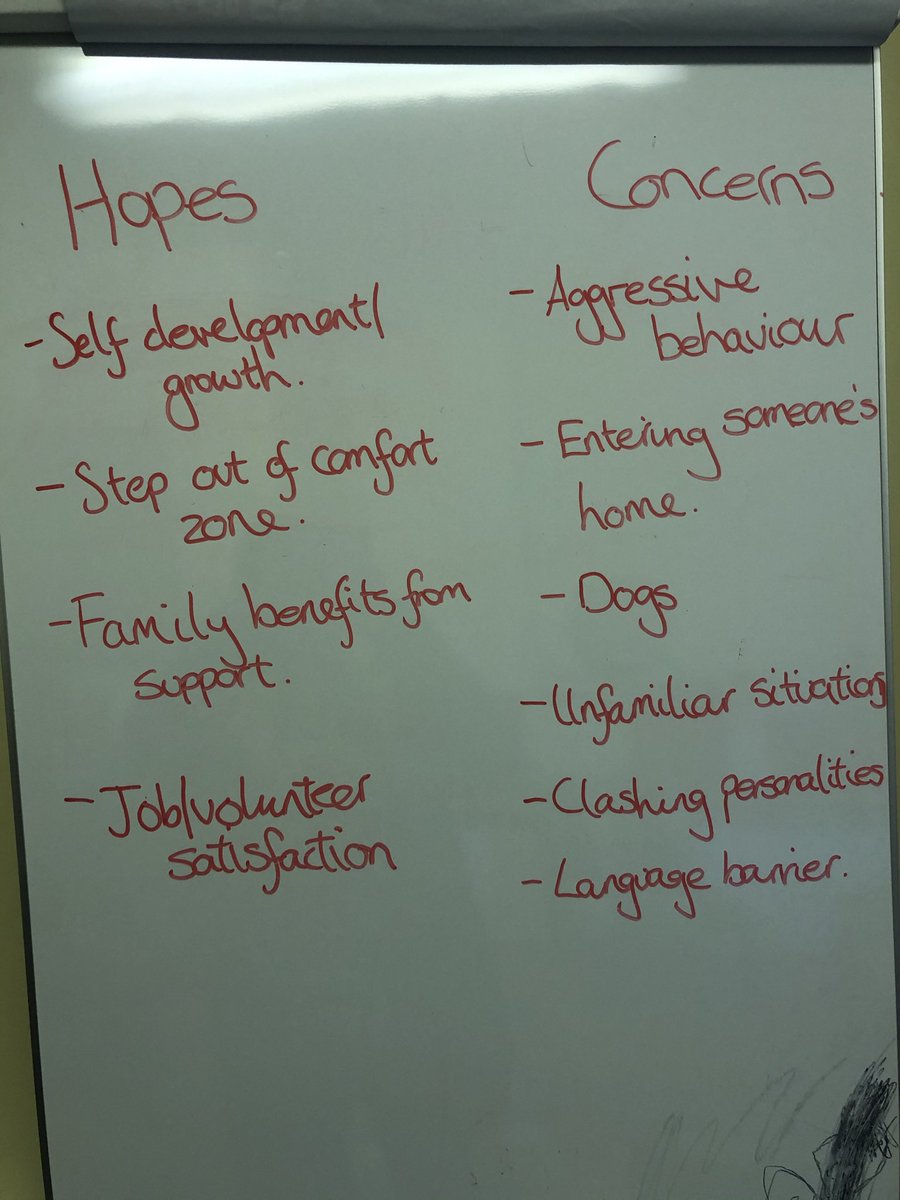 Hopes
- Self development/
growth.
- Step out of comfort
zone.
- Family benefits from
support.
- Job/volunteer
satisfaction
Concerns
- Aggressive
behaviour
- Entering someone's
home.
- Dogs
- Unfamiliar situations
- Clashing personalities
- Language barrier.